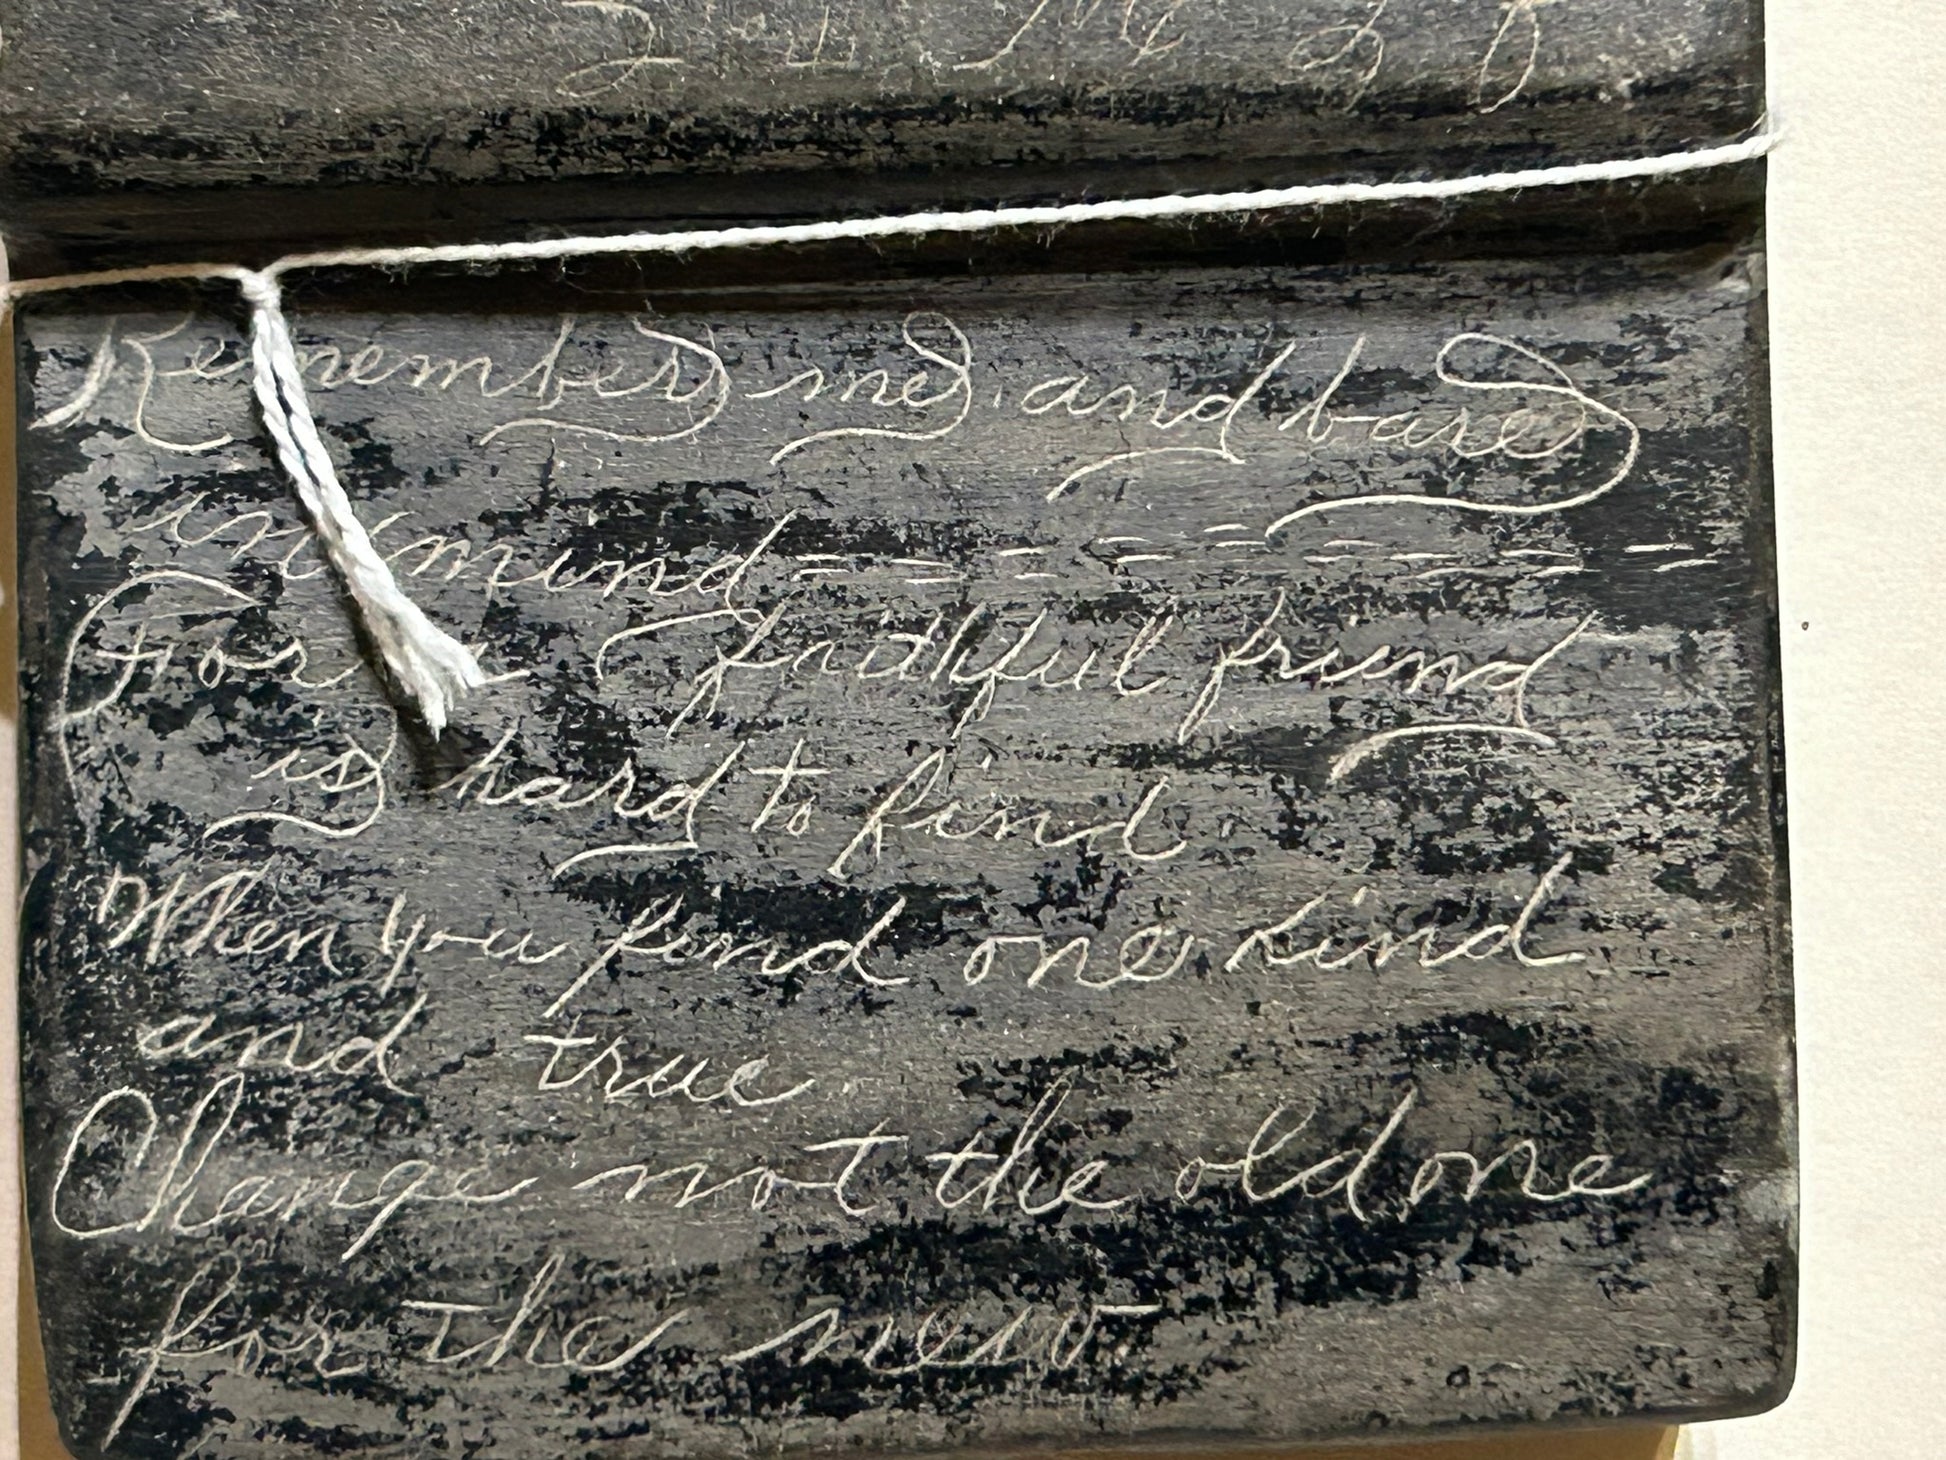 Remember me. and bare
in mind
For a faithful friend
is hard to find
When you find one kind
and true.
Change not the old one
for the new